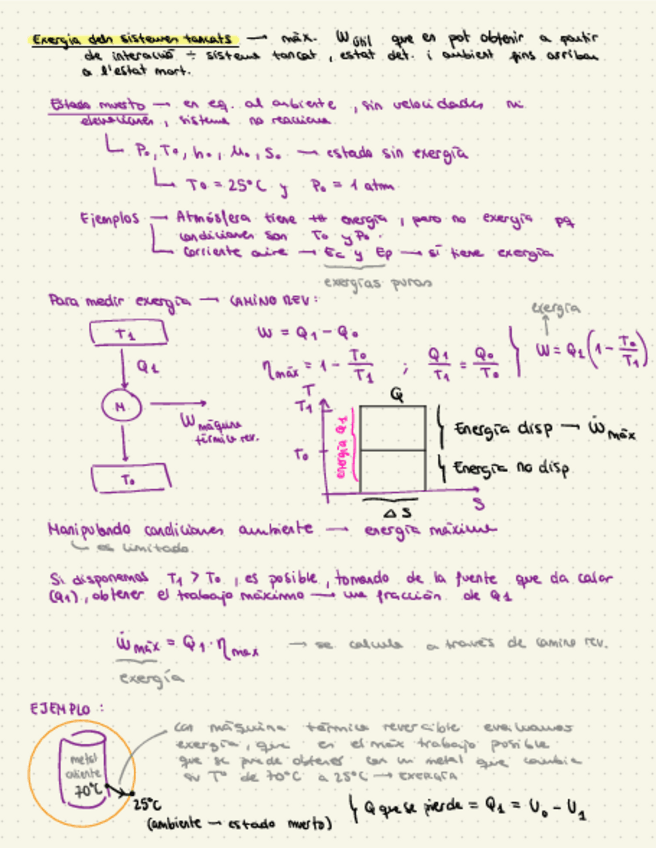 Exergia dels sistemes tancats → màx. Ẇútil que es pot obtenir a partir
de interacció ÷ sistema tancat, estat det. i ambient fins arribar
a l'estat mort.
Estado muerto → en eq. al ambiente, sin velocidades ni
elevaciones, sistema no reacciona
P₀, T₀, h₀, μ₀, S₀ → estado sin exergía
T₀ = 25°C y P₀ = 1 atm
Ejemplos → Atmósfera tiene energía, pero no exergía pq
condiciones son T₀ y P₀.
Corriente aire → Ec y Ep → sí tiene exergía
exergías puras
Para medir exergía → CAMINO REV:
exergía
T1
W = Q1 - Q₀
Q1
ηmáx = 1 - T₀/T1 ; Q1/T1 = Q₀/T₀ } W = Q1(1 - T₀/T1)
M
Wmáquina
térmica rev.
T₀
T
T1
Q
T₀
energía Q1
Energía disp → Ẇmáx
Energía no disp
ΔS
S
Manipulando condiciones ambiente → energía máxima
es limitado
Si disponemos T1 > T₀, es posible, tomando de la fuente que da calor
(Q1), obtener el trabajo máximo → una fracción de Q1
Ẇmáx = Q1 · ηmax → se calcula a través de camino rev.
exergía
EJEMPLO:
metal
caliente
70°C
25°C
(ambiente → estado muerto)
con máquina térmica reversible evaluamos
exergía, que es el máx trabajo posible
que se puede obtener con un metal que cambia
su T° de 70°C a 25°C → EXERGÍA
Q que se pierde = Q1 = U₀ - U1